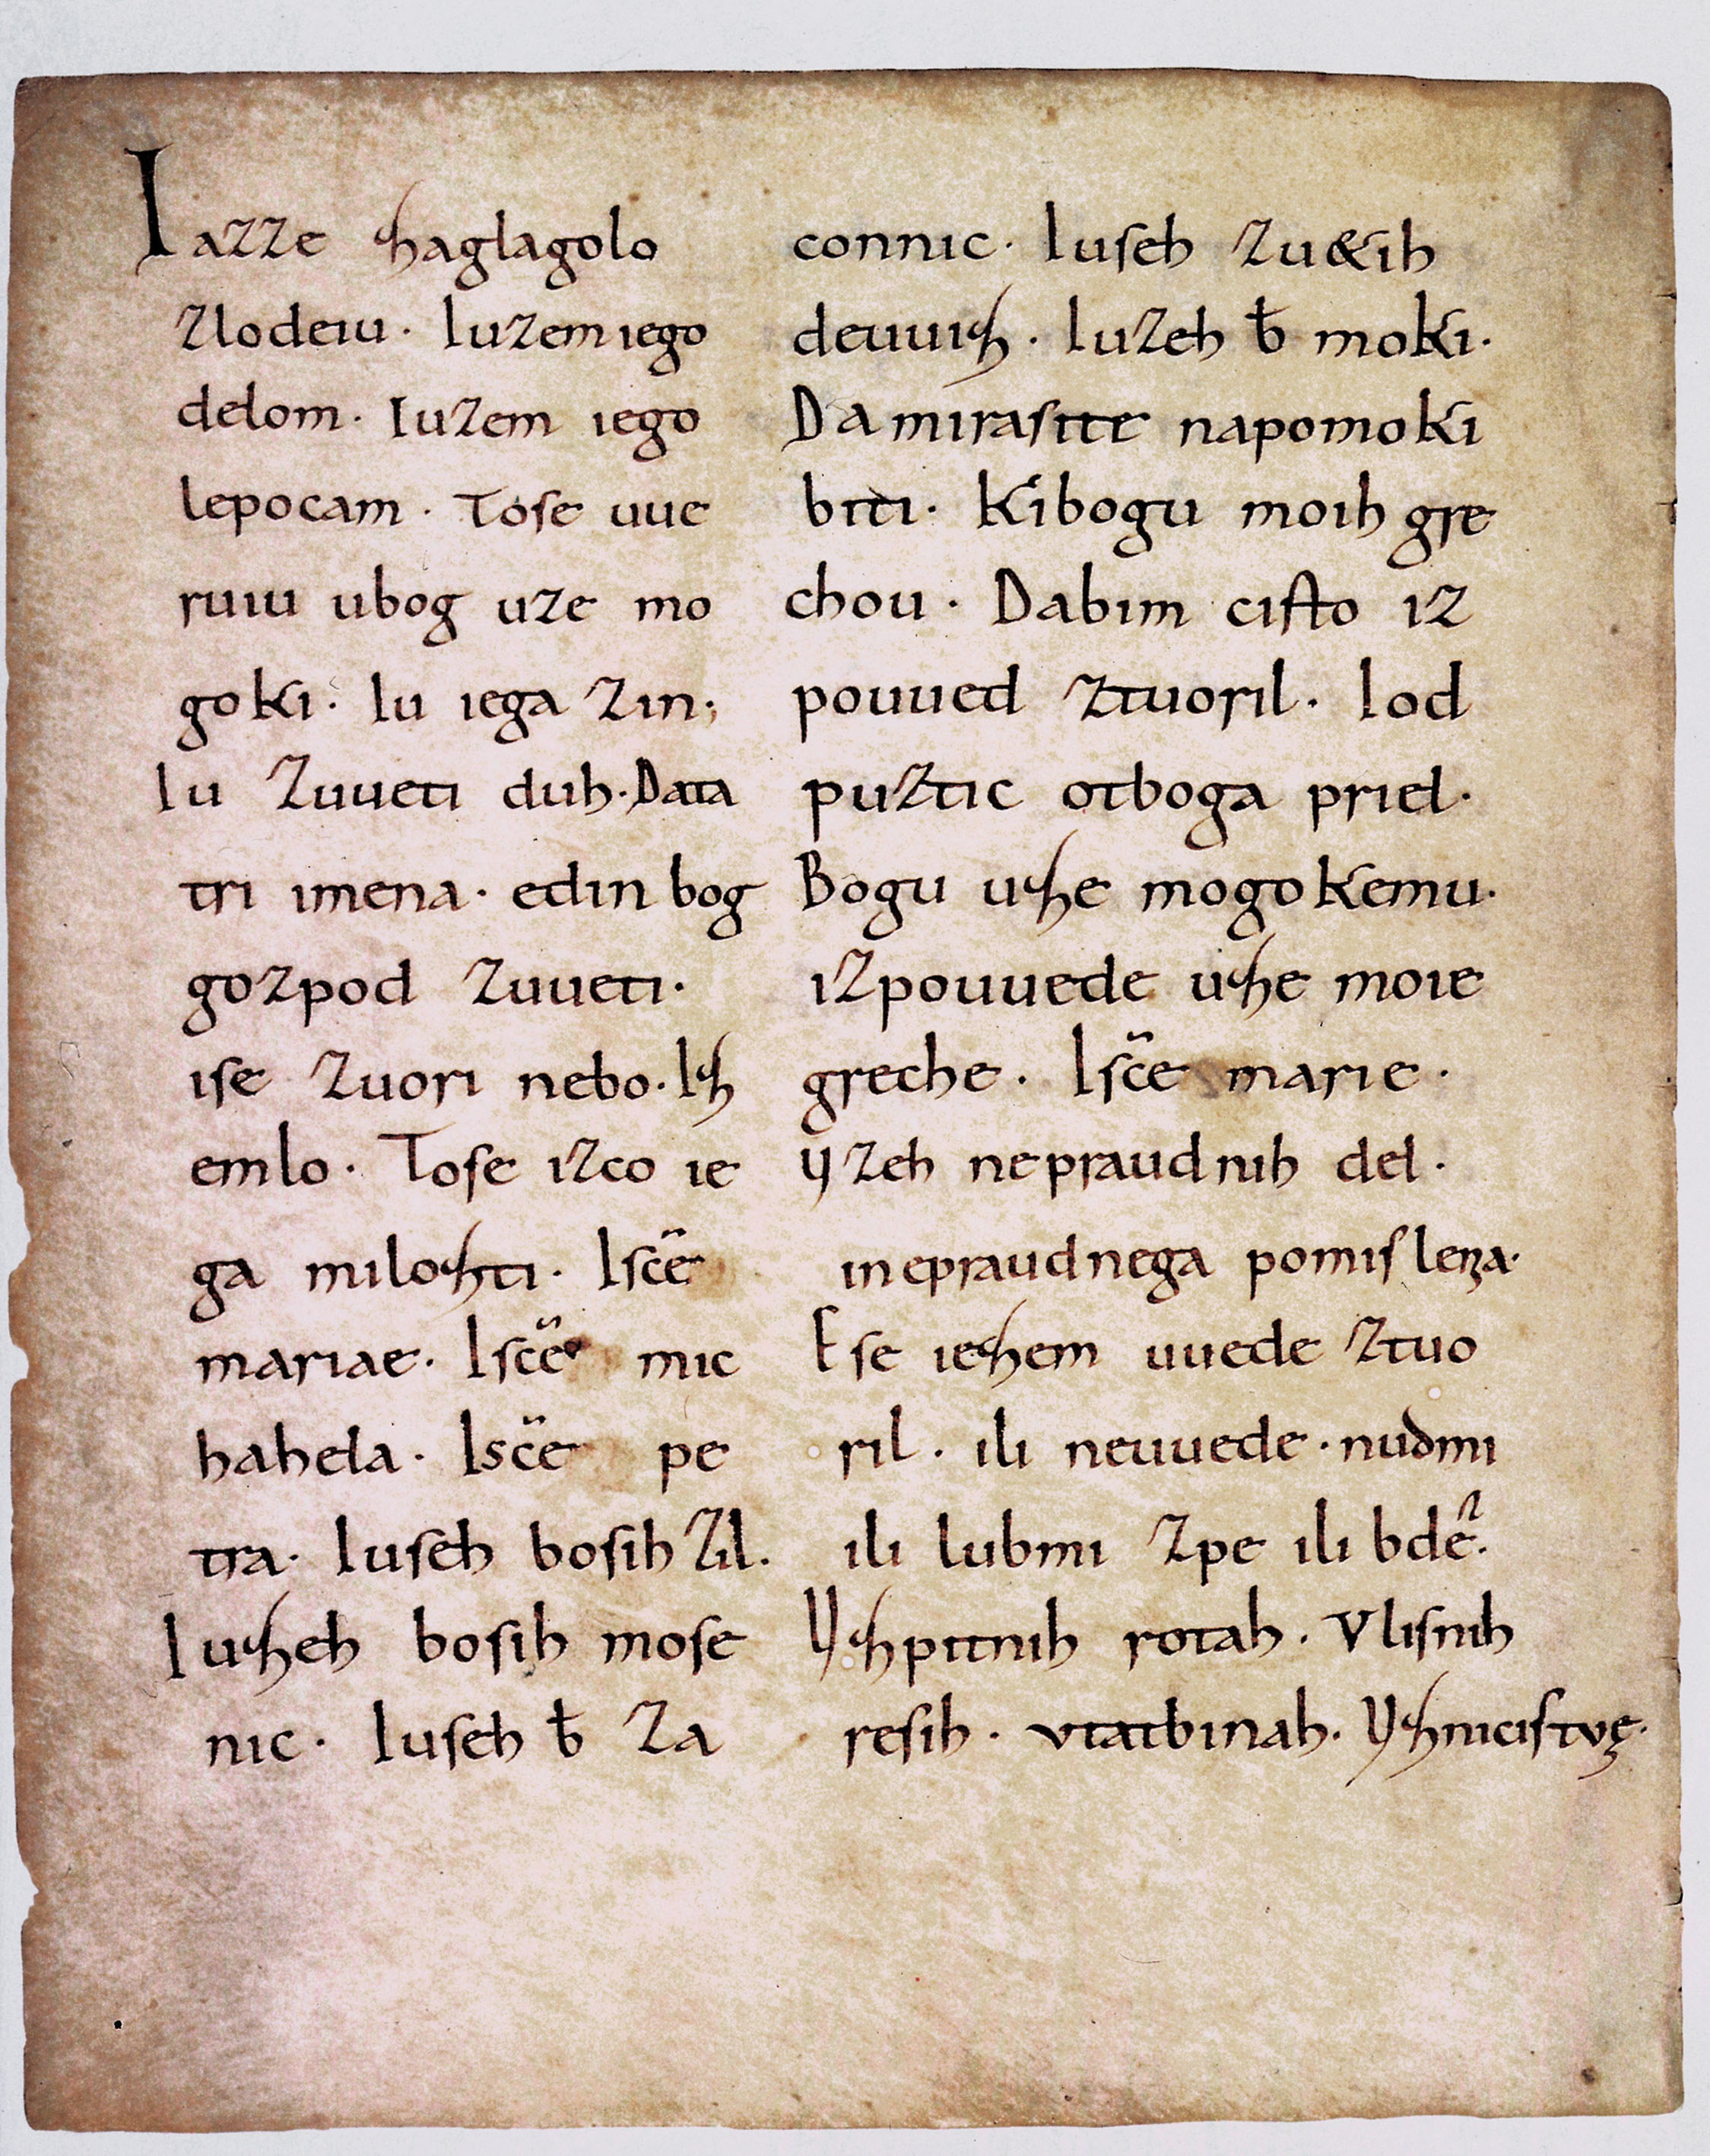 Iazze zhaglagolo
zlodeiu· Iuzem iego
delom· Iuzem iego
lepocam· Tose uue
ruiu ubog uze mo
goki· Iu iega zin;
Iu zuueti duh· Data
tri imena· edin bog
gozpod zuueti·
ise zuori nebo· Izh
emlo· Tose izco ie
ga milozhti· Isc̃e
mariae· Isc̃e mic
hahela· Isc̃e pe
tra· Iuseh bosih zil·
Iuzheh bosih mose
nic· Iuseh b̄ za
connic· Iuseh zu&ih
deuuizh· Iuzeh b̄ moki·
Da mirasite napomoki
biti· Kibogu moih gre
chou· Dabim cisto iz
pouued ztuoril· Iod
puztic otboga priel·
Bogu uzhe mogokemu·
izpouuede uzhe moie
greche· Isc̃e marie·
Yzeh nepraudnih del·
inepraudnega pomislena·
Ese iezhem uuede ztuo
ril· ili neuuede· nudmi
ili lubmi zpe ili bdeͬ·
Yzhpitnih rotah· Vlisnih
resih· vtatbinah· Yzhnicistvę·